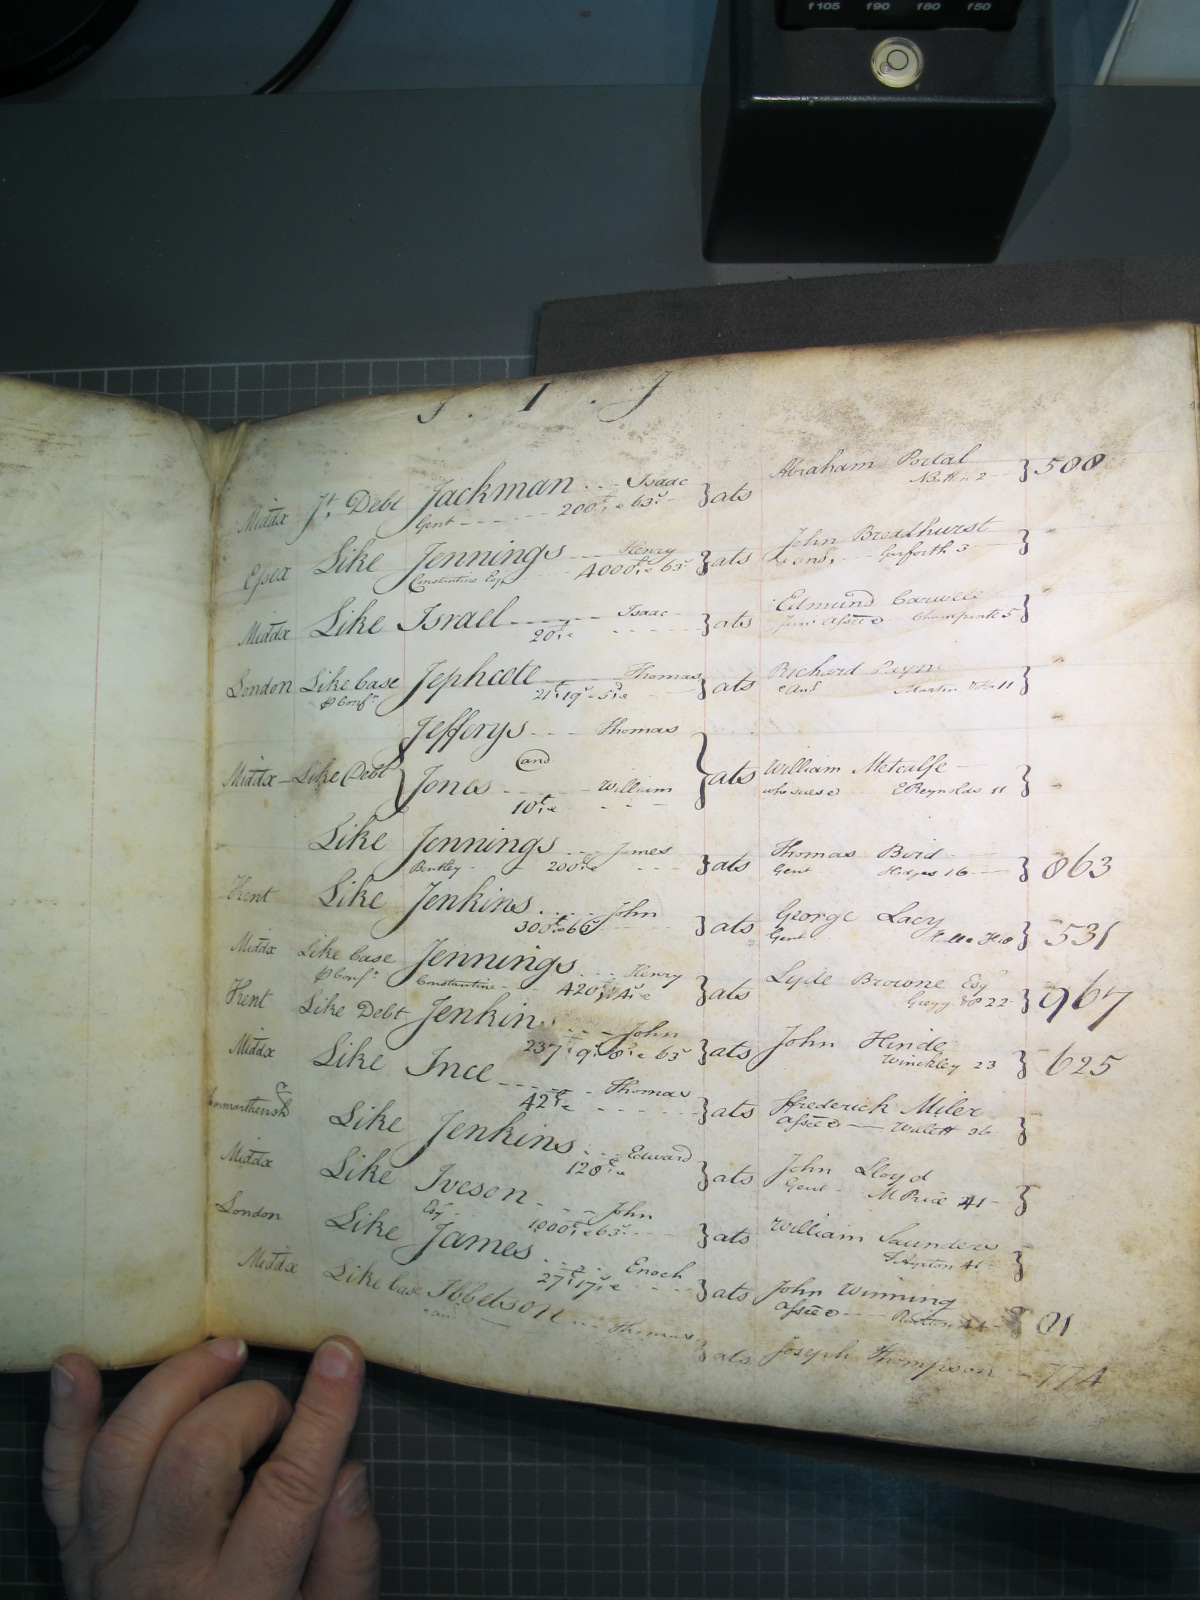 f105 f90 f80 f50
PHILIPS
J . I . J
Middx Jt. Debt Jackman - - - Isaac } ats Abraham Portal } 500
Gent - - - - 200£ & 63s
Essex Like Jennings - - - Henry } ats John Broadhurst }
Constantine Esq - - - 4000£ & 63s Garforth 3
Middx Like Israel - - - - Isaac } ats Edmund Carwell }
20£ & - - - - Junr Assee
London Like Case Jephcote - - - Thomas } ats Richard Payne }
& Conf 21£ 19s - 5d & Martin 11
Jefforys - - - Thomas
and
Middx - Like Debt { Jones - - - William } ats William Metcalfe }
10£ & - - - who sues & E Reynolds 11
Like Jennings - - - James } ats Thomas Bird } 863
Bentley - 200£ & - - - Gent Hidges 16
Kent Like Jenkins - - - John } ats George Lacy } 531
300£ & 66s Gent
Middx Like Case Jennings - - - Henry } ats Lyde Browne Esq } 967
& Conf Constantine - - 420£ 14s & Gregg & P 22
Kent Like Debt Jenkins - - - John } ats John Hinde } 625
237£ 9s 8d & 63s Winckley 23
Middx Like Ince - - - - Thomas } ats Ffrederick Miler }
42£ & - - - - Assee - Willett 36
Carmarthensh Like Jenkins - - - Edward } ats John Lloyd }
128£ & Gent - M Price 41
Middx Like Iveson - - - John } ats William Saunders }
Esq - 1000£ & 63s 41
London Like James - - - Enoch } ats John Winning } 81
27£ 17s & - - - Assee
Middx Like Case Ibbetson - - - Thomas } ats Joseph Thompson - 774
and